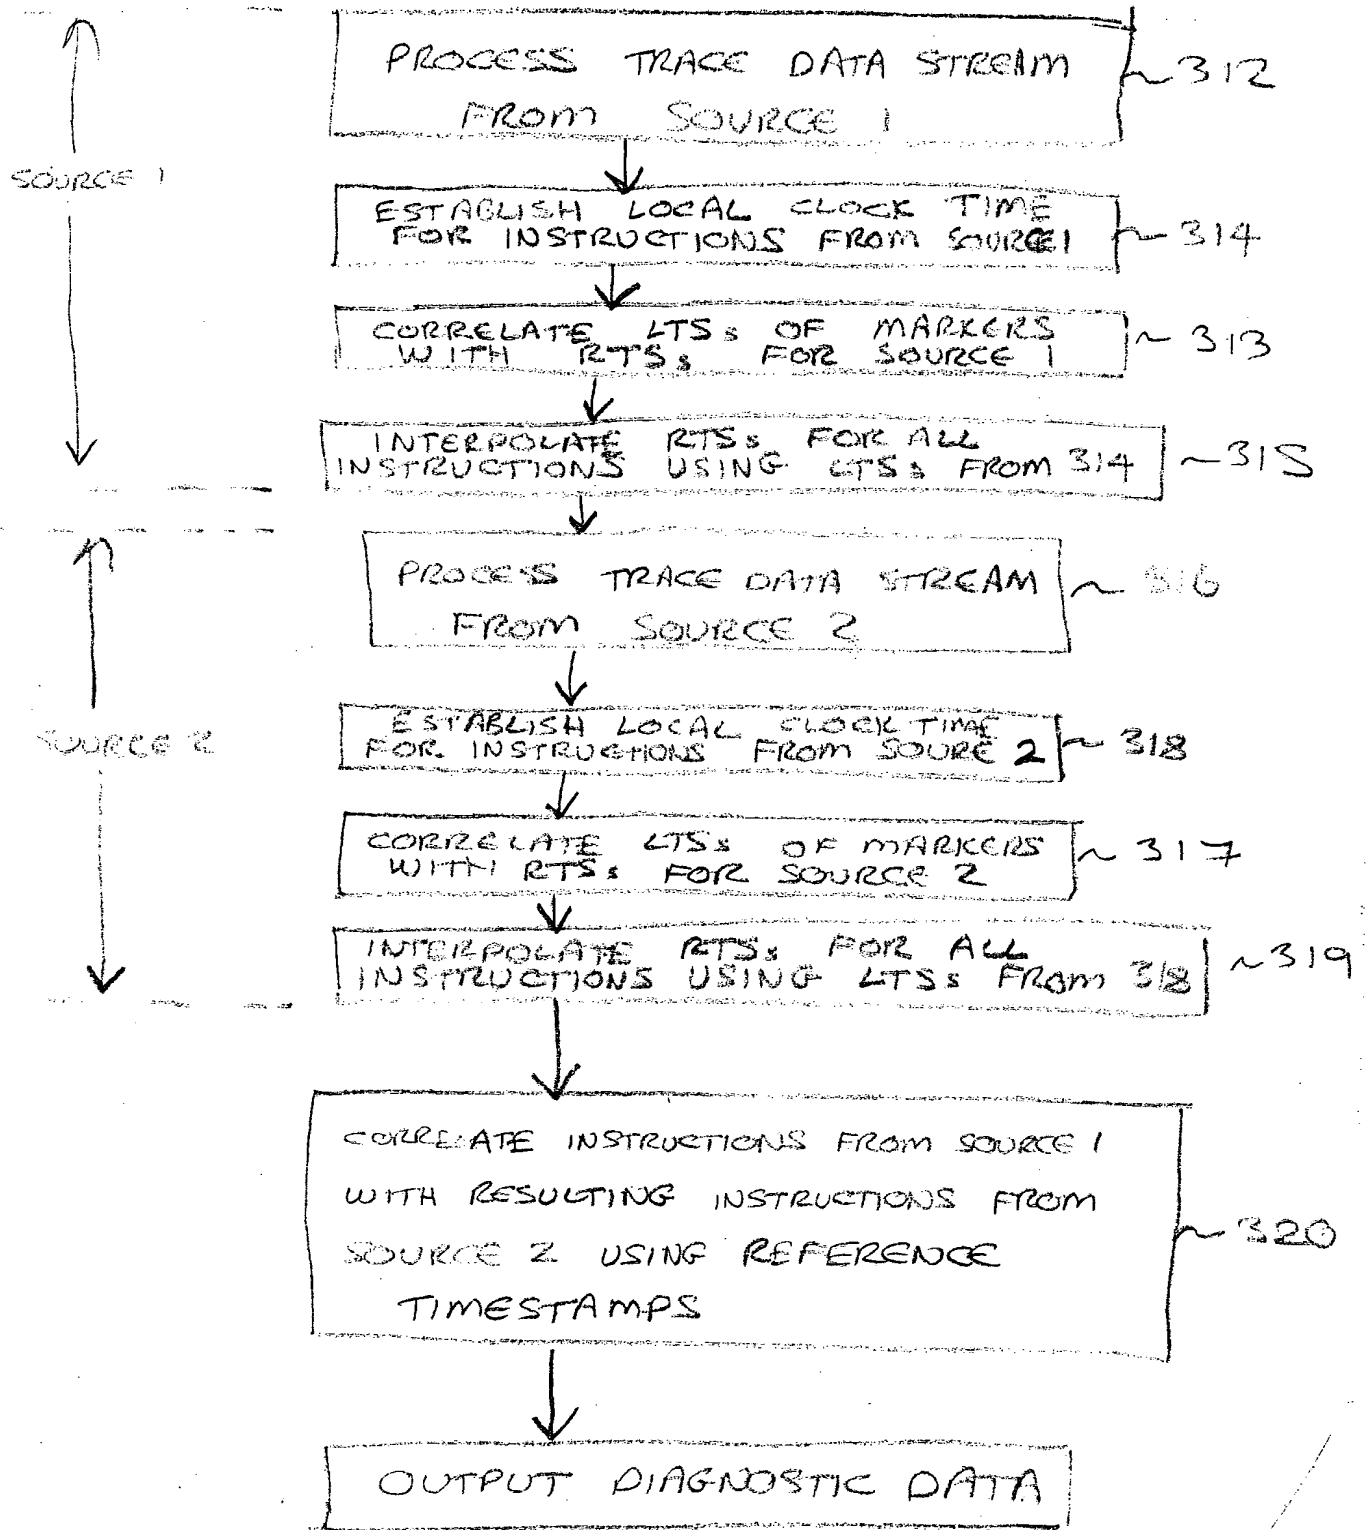 PROCESS TRACE DATA STREAM
FROM SOURCE 1
~312
SOURCE 1
ESTABLISH LOCAL CLOCK TIME
FOR INSTRUCTIONS FROM SOURCE 1
~314
CORRELATE LTSs OF MARKERS
WITH RTSs FOR SOURCE 1
~313
INTERPOLATE RTSs FOR ALL
INSTRUCTIONS USING LTSs FROM 314
~315
PROCESS TRACE DATA STREAM
FROM SOURCE 2
~316
ESTABLISH LOCAL CLOCK TIME
FOR INSTRUCTIONS FROM SOURE 2
~318
SOURCE 2
CORRELATE LTSs OF MARKERS
WITH RTSs FOR SOURCE 2
~317
INTERPOLATE RTSs FOR ALL
INSTRUCTIONS USING LTSs FROM 318
~319
CORRELATE INSTRUCTIONS FROM SOURCE 1
WITH RESULTING INSTRUCTIONS FROM
SOURCE 2 USING REFERENCE
TIMESTAMPS
~320
OUTPUT DIAGNOSTIC DATA